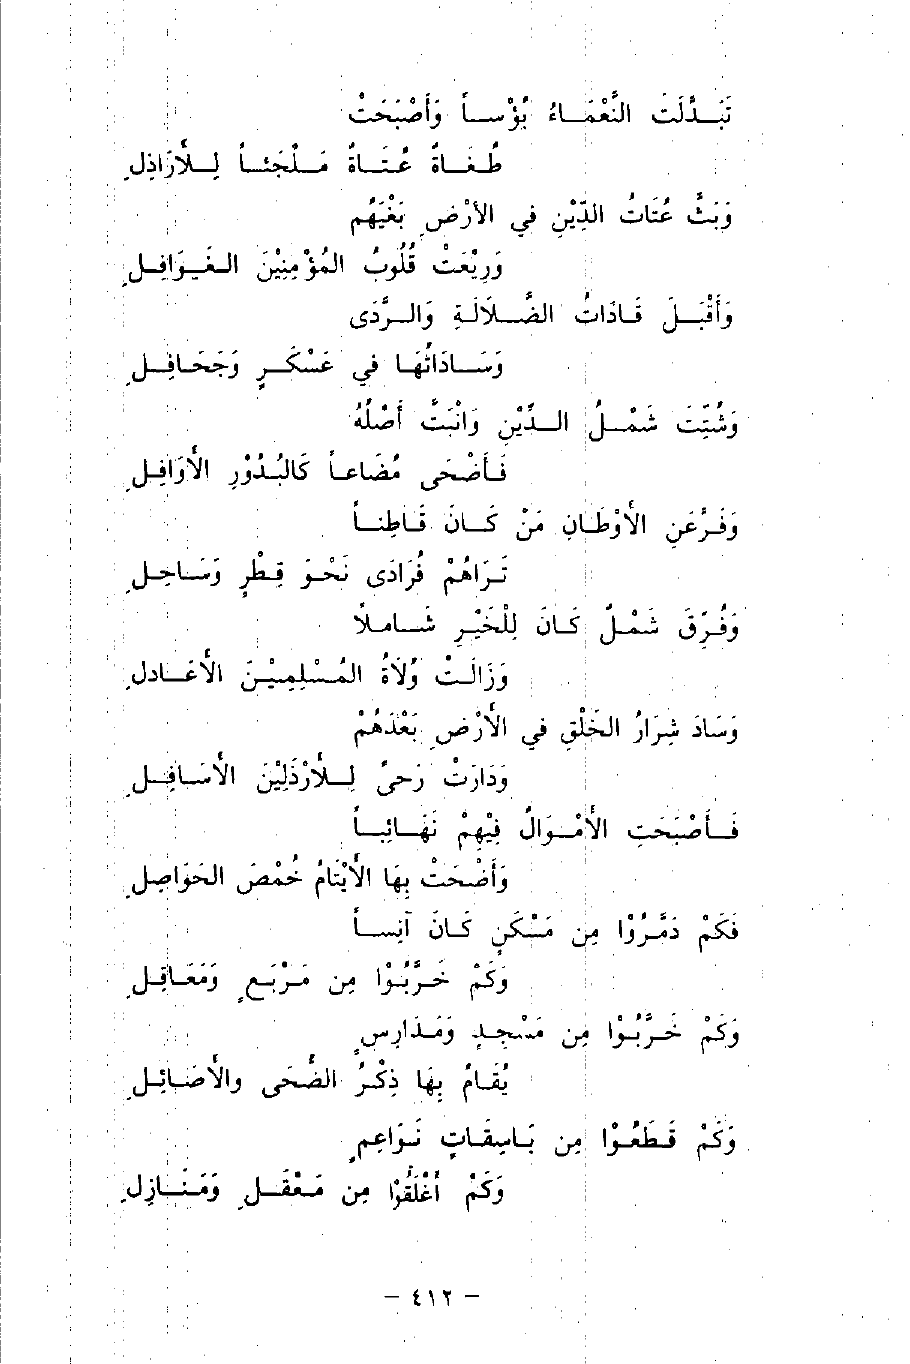 تَبَدَّلَتِ النَّعْمَاءُ بُؤْساً وَأَصْبَحَتْ
طُغَاةُ عُتَاةُ مَلْجَئاً لِلأَرَاذِلِ
وَبَثَّ عُتَاتُ الدِّيْنِ في الأرْضِ بَغْيَهُم
وَرِيْعَتْ قُلُوبُ المُؤْمِنِيْنَ الغَوَافِلِ
وَأَقْبَلَ قَادَاتُ الضَّلاَلَةِ وَالرَّدَى
وَسَادَاتُهَا في عَسْكَرٍ وَجَحَافِلِ
وَشُتِّتَ شَمْلُ الدِّيْنِ وَانْبَتَّ أَصْلُهُ
فَأَضْحَى مُضَاعاً كَالبُدُوْرِ الأَوَافِلِ
وَفَرَّعَنِ الأَوْطَانِ مَنْ كَانَ قَاطِناً
تَرَاهُمْ فُرَادَى نَحْوَ قِطْرٍ وَسَاحِلِ
وَفُرِّقَ شَمْلٌ كَانَ لِلْخَيْرِ شَامِلاً
وَزَالَتْ وُلَاةُ المُسْلِمِيْنَ الأَعَادلِ
وَسَادَ شِرَارُ الخَلْقِ في الأَرْضِ بَعْدَهُمْ
وَدَارَتْ رَحىً لِلأَرْذَلِيْنَ الأَسَافِلِ
فَأَصْبَحَتِ الأَمْوَالُ فِيْهِمْ نَهَائِباً
وَأَضْحَتْ بِهَا الأَيْتَامُ خُمْصَ الحَوَاصِلِ
فَكَمْ دَمَّرُوْا مِن مَسْكَنٍ كَانَ آنِساً
وَكَمْ خَرَّبُوْا مِن مَرْبَعٍ وَمَعَاقِلِ
وَكَمْ خَرَّبُوْا مِن مَسْجِدٍ وَمَدَارِسٍ
يُقَامُ بِهَا ذِكْرُ الضُّحَى والأَصَائِلِ
وَكَمْ قَطَعُوْا مِن بَاسِقَاتٍ نَوَاعِمٍ
وَكَمْ أَغْلَقُوْا مِن مَعْقَلٍ وَمَنَازِلِ
- ٤١٢ -